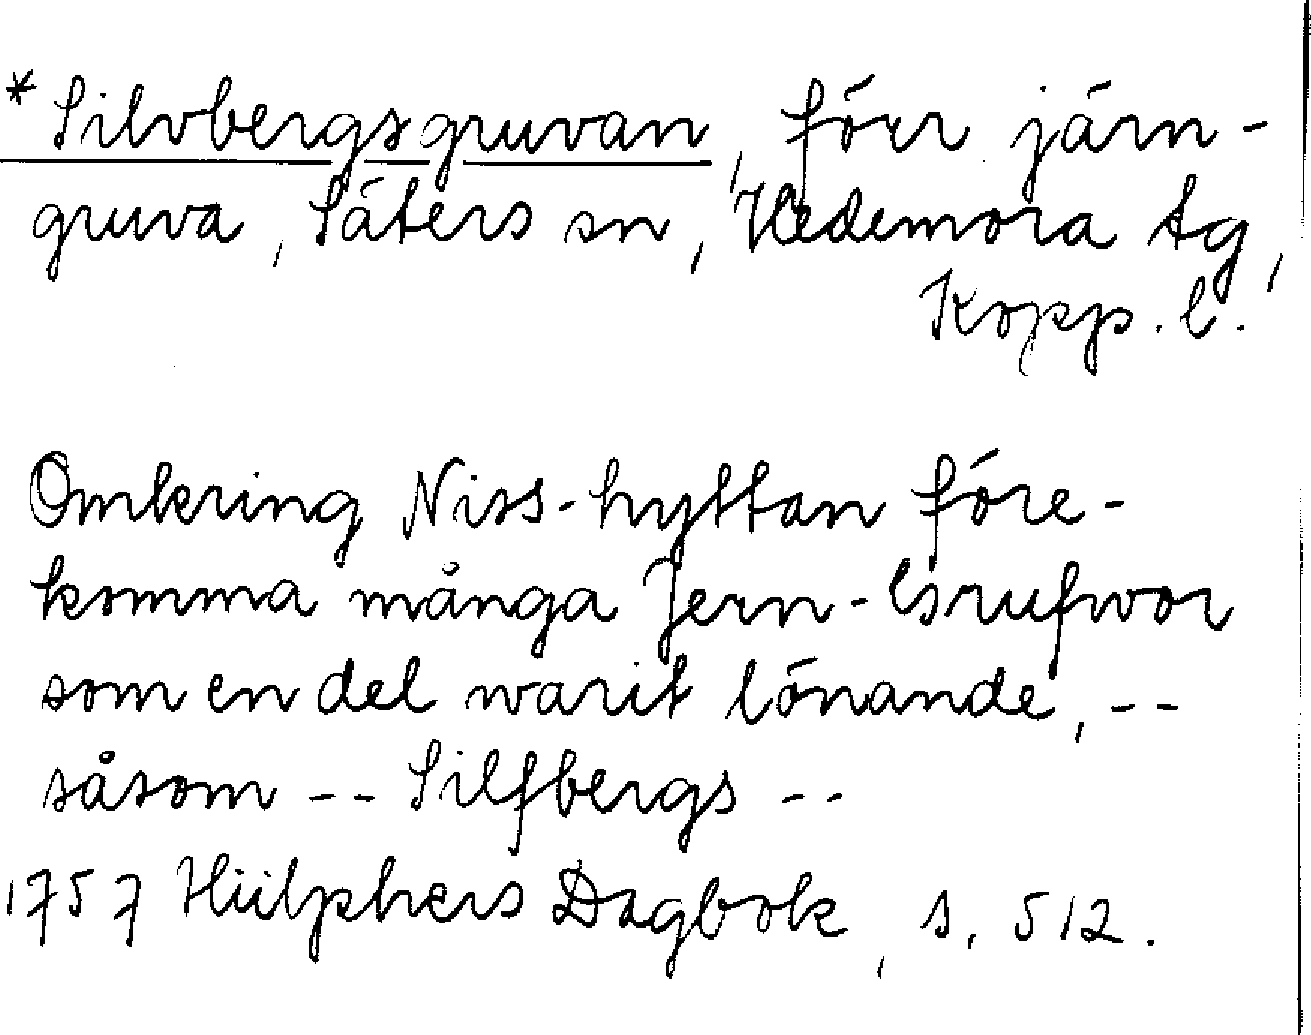 *Silvbergsgruvan, förr järn-
gruva, Säters sn, Hedemora tg,
Kopp. l.
Omkring Niss-hyttan före-
komma många Jern-Grufwor
som en del warit lönande, --
såsom -- Silfbergs --
1757 Hülphers Dagbok, s. 512.